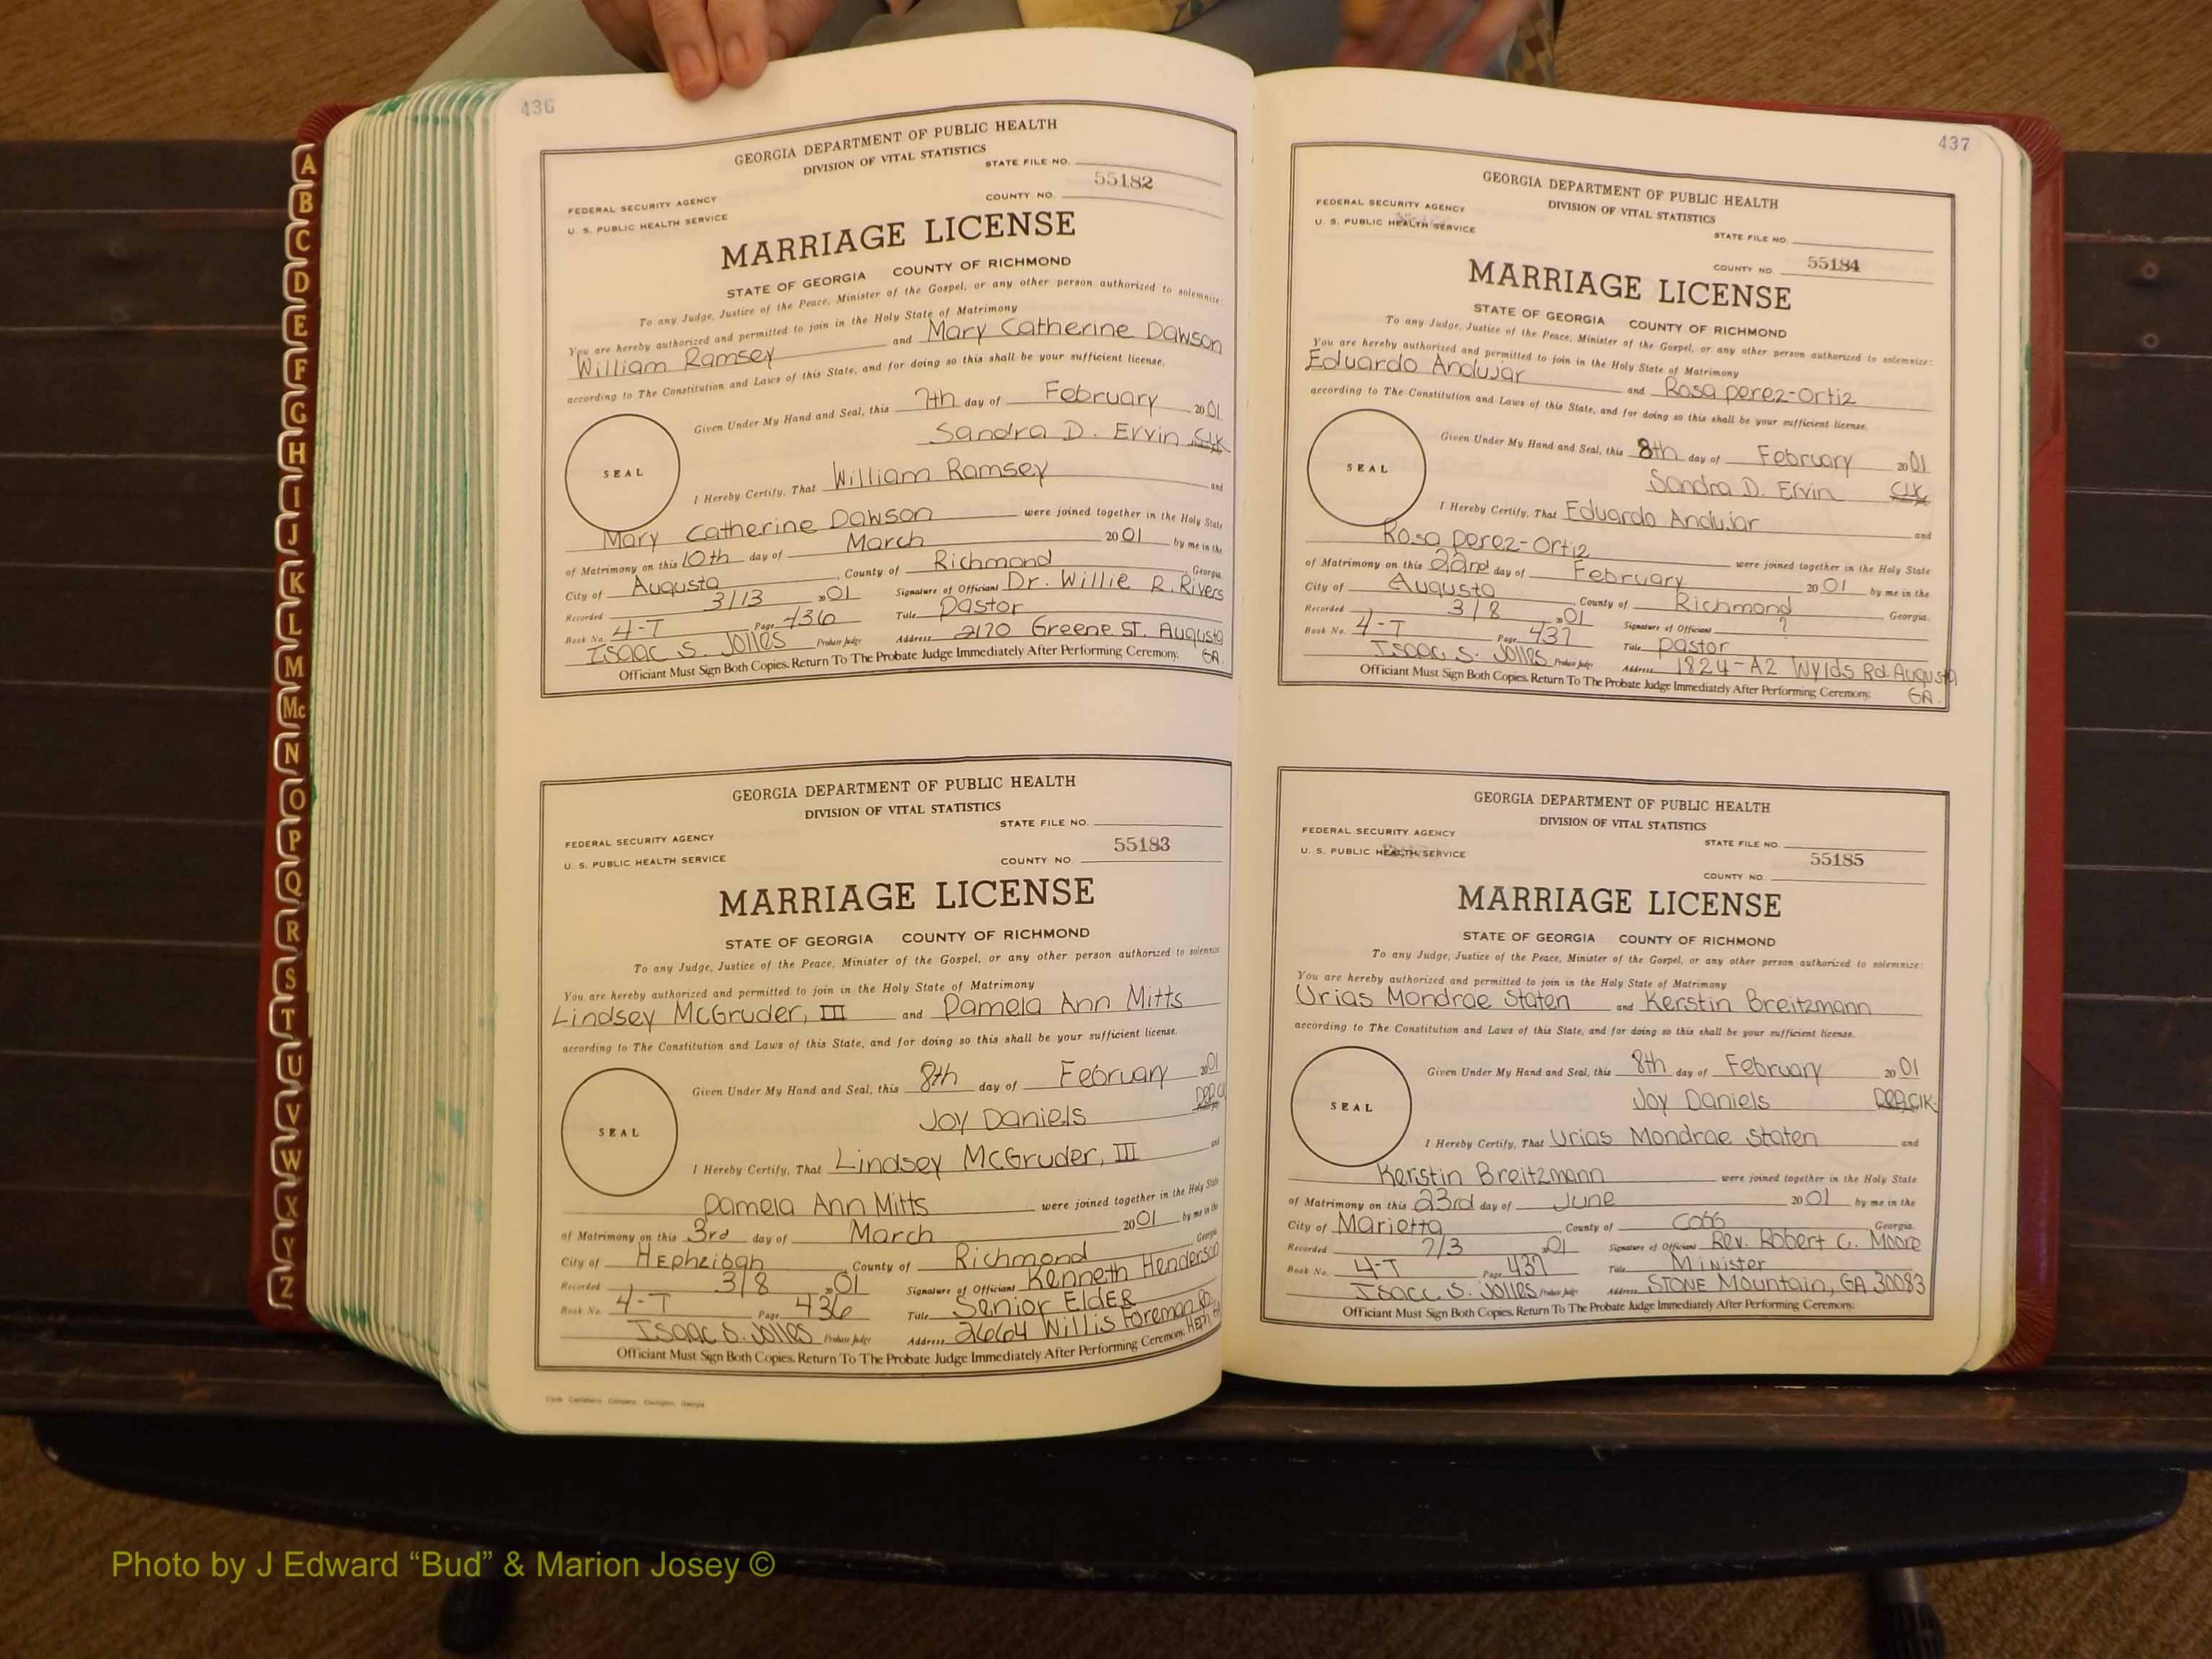 A
B
C
D
E
F
G
H
I
J
K
L
M
Mc
N
O
P
Q
R
S
T
U
V
W
X
Y
Z
436
GEORGIA DEPARTMENT OF PUBLIC HEALTH
DIVISION OF VITAL STATISTICS
STATE FILE NO.
55182
FEDERAL SECURITY AGENCY
COUNTY NO.
U. S. PUBLIC HEALTH SERVICE
MARRIAGE LICENSE
STATE OF GEORGIA COUNTY OF RICHMOND
To any Judge, Justice of the Peace, Minister of the Gospel, or any other person authorized to solemnize:
You are hereby authorized and permitted to join in the Holy State of Matrimony
William Ramsey and Mary Catherine Dawson
according to The Constitution and Laws of this State, and for doing so this shall be your sufficient license.
Given Under My Hand and Seal, this 7th day of February 2001
Sandra D. Ervin CLK
SEAL
I Hereby Certify, That William Ramsey and
Mary Catherine Dawson were joined together in the Holy State
of Matrimony on this 10th day of March 2001 by me in the
City of Augusta, County of Richmond, Georgia.
Recorded 3/13 2001 Signature of Officiant Dr. Willie R. Rivers
Book No. 4-T Page 436 Title Pastor
Isaac S. Jolles Probate Judge Address 2170 Greene ST. Augusta
GA.
Officiant Must Sign Both Copies. Return To The Probate Judge Immediately After Performing Ceremony.
GEORGIA DEPARTMENT OF PUBLIC HEALTH
DIVISION OF VITAL STATISTICS
STATE FILE NO.
FEDERAL SECURITY AGENCY
55183
U. S. PUBLIC HEALTH SERVICE
COUNTY NO.
MARRIAGE LICENSE
STATE OF GEORGIA COUNTY OF RICHMOND
To any Judge, Justice of the Peace, Minister of the Gospel, or any other person authorized to solemnize
You are hereby authorized and permitted to join in the Holy State of Matrimony
Lindsey McGruder, III and Pamela Ann Mitts
according to The Constitution and Laws of this State, and for doing so this shall be your sufficient license.
Given Under My Hand and Seal, this 8th day of February 2001
Joy Daniels
SEAL
I Hereby Certify, That Lindsey McGruder, III and
Pamela Ann Mitts were joined together in the Holy State
of Matrimony on this 3rd day of March 2001 by me in the
City of Hephzibah, County of Richmond Georgia
Recorded 3/8 2001 Signature of Officiant Kenneth Henderson
Book No. 4-T Page 436 Title Senior Elder
Isaac S. Jolles Probate Judge Address 2664 Willis Foreman Rd. Heph, GA
Officiant Must Sign Both Copies. Return To The Probate Judge Immediately After Performing Ceremony.
437
GEORGIA DEPARTMENT OF PUBLIC HEALTH
DIVISION OF VITAL STATISTICS
FEDERAL SECURITY AGENCY
U. S. PUBLIC HEALTH SERVICE
STATE FILE NO.
COUNTY NO. 55184
MARRIAGE LICENSE
STATE OF GEORGIA COUNTY OF RICHMOND
To any Judge, Justice of the Peace, Minister of the Gospel, or any other person authorized to solemnize:
You are hereby authorized and permitted to join in the Holy State of Matrimony
Eduardo Andujar and Rosa perez-Ortiz
according to The Constitution and Laws of this State, and for doing so this shall be your sufficient license.
Given Under My Hand and Seal, this 8th day of February 2001
Sandra D. Ervin CLK
SEAL
I Hereby Certify, That Eduardo Andujar and
Rosa perez-Ortiz were joined together in the Holy State
of Matrimony on this 22nd day of February 2001 by me in the
City of Augusta, County of Richmond Georgia.
Recorded 3/8 2001 Signature of Officiant ?
Book No. 4-T Page 437 Title pastor
Isaac S. Jolles Probate Judge Address 1824-A2 Wylds Rd. Augusta
GA.
Officiant Must Sign Both Copies. Return To The Probate Judge Immediately After Performing Ceremony.
GEORGIA DEPARTMENT OF PUBLIC HEALTH
DIVISION OF VITAL STATISTICS
FEDERAL SECURITY AGENCY
STATE FILE NO.
U. S. PUBLIC HEALTH SERVICE
55185
COUNTY NO.
MARRIAGE LICENSE
STATE OF GEORGIA COUNTY OF RICHMOND
To any Judge, Justice of the Peace, Minister of the Gospel, or any other person authorized to solemnize:
You are hereby authorized and permitted to join in the Holy State of Matrimony
Urias Mondrae Staten and Kerstin Breitzmann
according to The Constitution and Laws of this State, and for doing so this shall be your sufficient license.
Given Under My Hand and Seal, this 8th day of February 2001
Joy Daniels Dep. Clk.
SEAL
I Hereby Certify, That Urias Mondrae Staten and
Kerstin Breitzmann were joined together in the Holy State
of Matrimony on this 23rd day of June 2001 by me in the
City of Marietta, County of Cobb Georgia.
Recorded 7/3 2001 Signature of Officiant Rev. Robert C. Moore
Book No. 4-T Page 437 Title Minister
Isacc S. Jolles Probate Judge Address STONE Mountain, GA 30083
Officiant Must Sign Both Copies. Return To The Probate Judge Immediately After Performing Ceremony.
Photo by J Edward “Bud” & Marion Josey ©